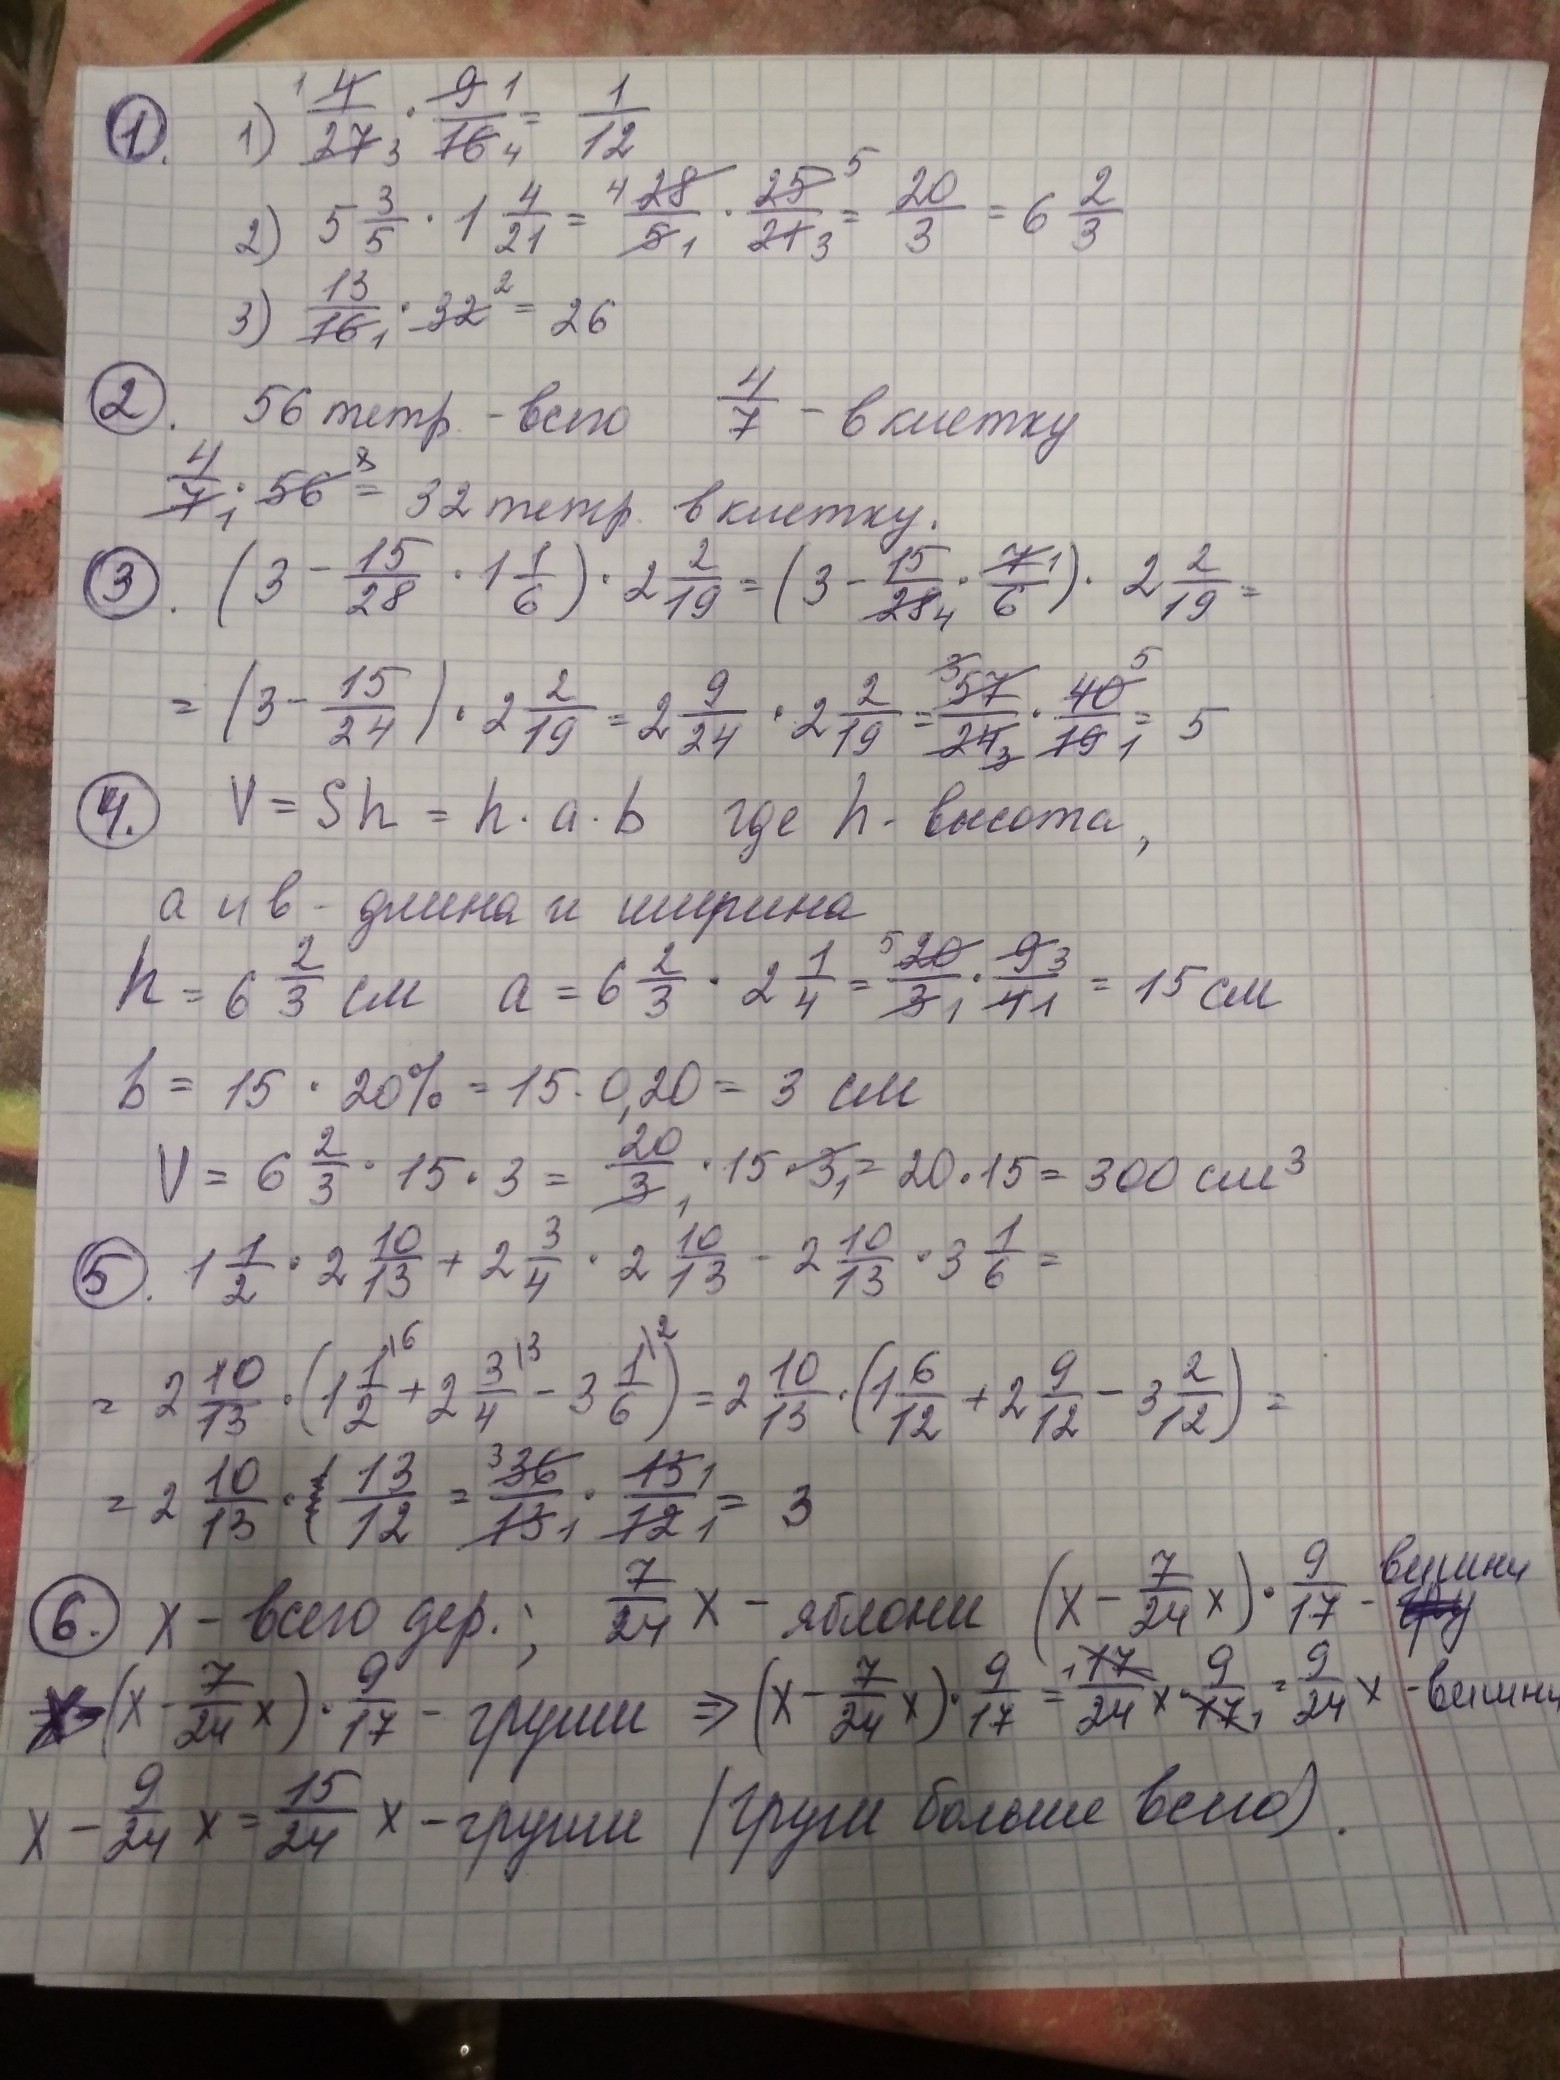 1. 1) 4/27 · 9/16 = 1/12
2) 5 3/5 · 1 4/21 = 28/5 · 25/21 = 20/3 = 6 2/3
3) 13/16 · 32 = 26
2. 56 тетр. - всего 4/7 - в клетку
4/7 · 56 = 32 тетр. в клетку.
3. (3 - 15/28 · 1 1/6) · 2 2/19 = (3 - 15/28 · 7/6) · 2 2/19 =
= (3 - 15/24) · 2 2/19 = 2 9/24 · 2 2/19 = 57/24 · 40/19 = 5
4. V = Sh = h · a · b где h - высота,
а и в - длина и ширина
h = 6 2/3 см a = 6 2/3 · 2 1/4 = 20/3 · 9/4 = 15 см
b = 15 · 20% = 15 · 0,20 = 3 см
V = 6 2/3 · 15 · 3 = 20/3 · 15 · 3 = 20 · 15 = 300 см³
5. 1 1/2 · 2 10/13 + 2 3/4 · 2 10/13 - 2 10/13 · 3 1/6 =
= 2 10/13 · (1 1/2 \6 + 2 3/4 \3 - 3 1/6 \2) = 2 10/13 · (1 6/12 + 2 9/12 - 3 2/12) =
= 2 10/13 · 13/12 = 36/13 · 13/12 = 3
6. x - всего дер.; 7/24 x - яблони (x - 7/24 x) · 9/17 - вишни
(x - 7/24 x) · 9/17 - груши ⇒ (x - 7/24 x) · 9/17 = 17/24 x · 9/17 = 9/24 x - вишни
x - 9/24 x = 15/24 x - груши (груш больше всего).